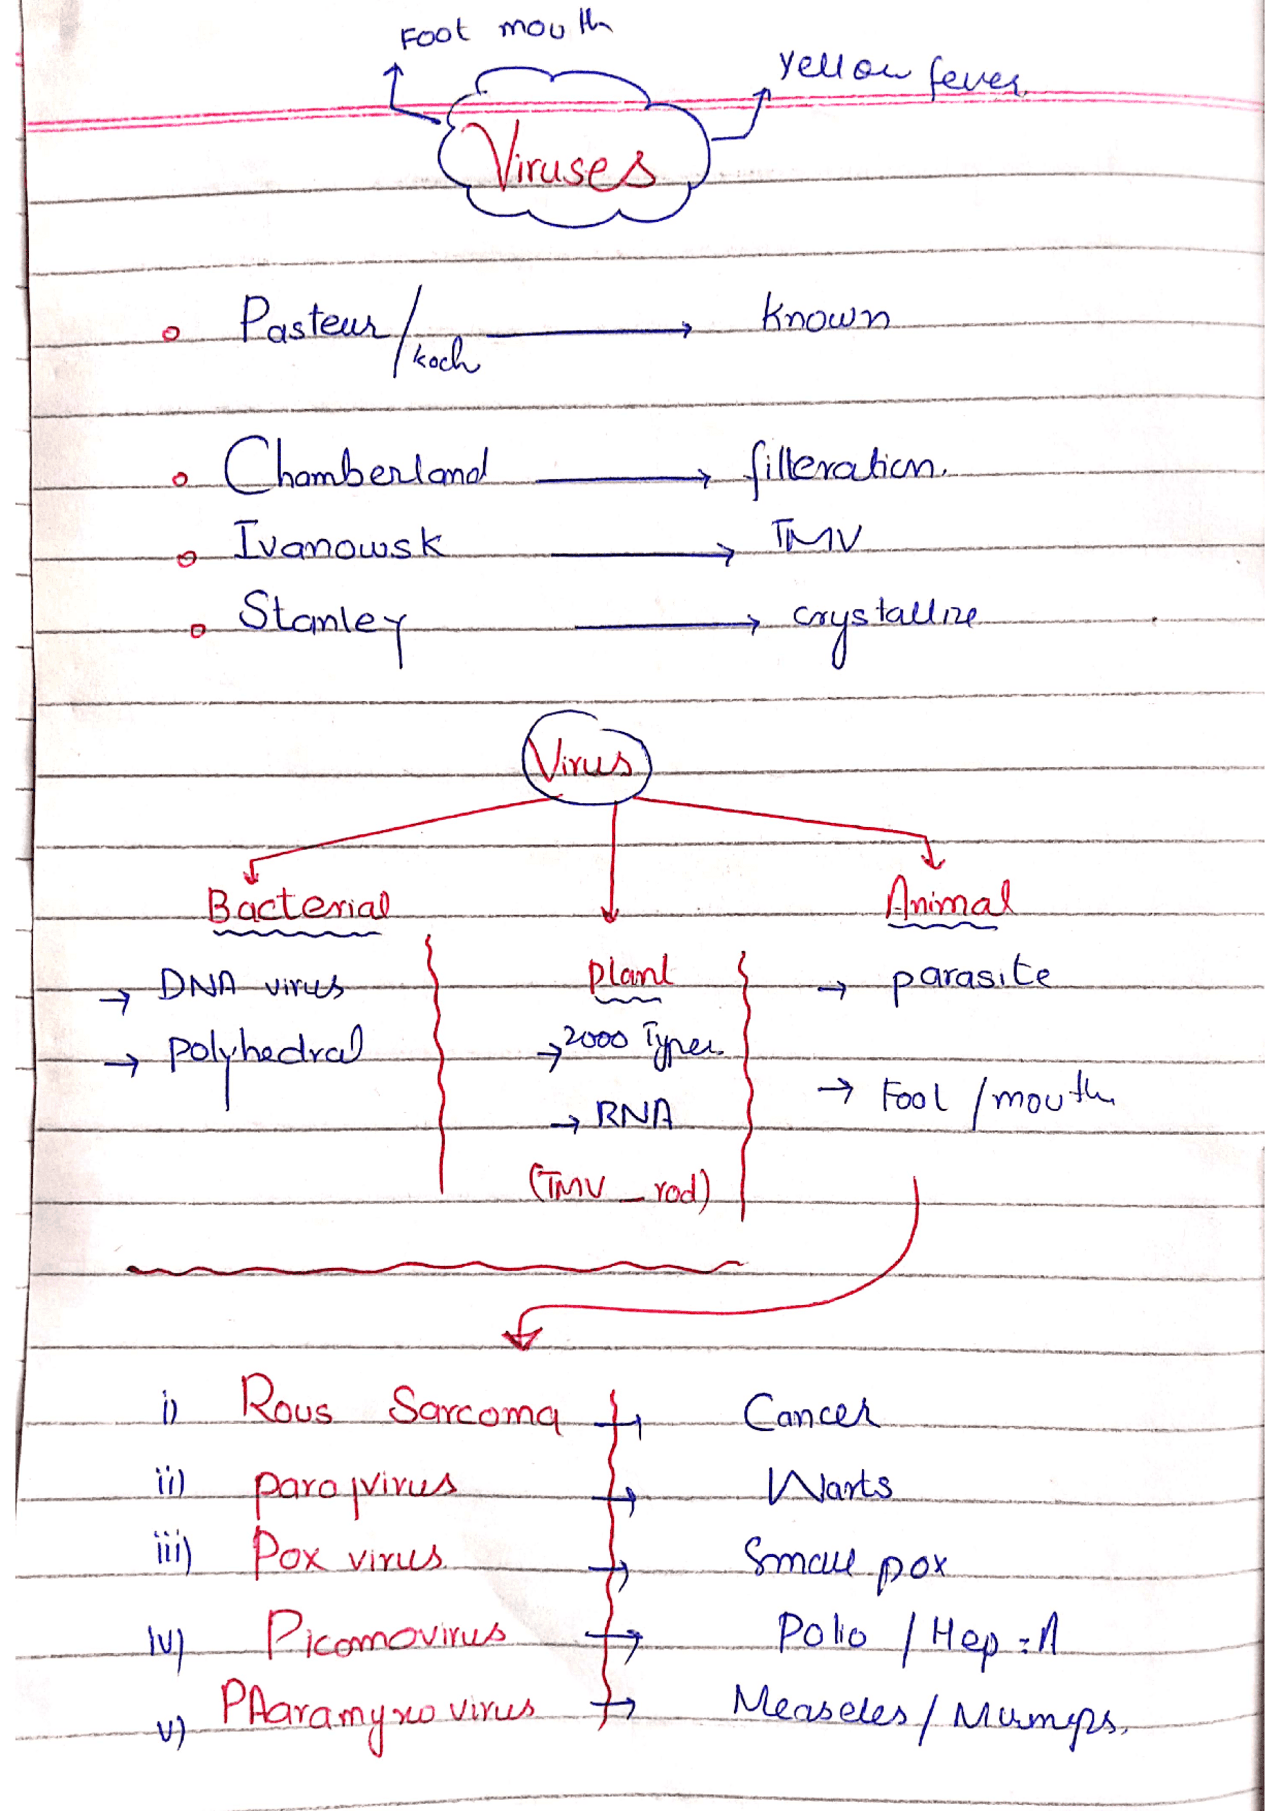 Foot mouth
Yellow fever
Viruses
Pasteur / Koch → Known
Chamberland → filleration.
Ivanowsk → TMV
Stanley → crystallize
Virus
Bacterial
Animal
→ DNA virus
plant
→ parasite
→ Polyhedral
→ 2000 Types
→ Foot / mouth
→ RNA
(TMV - rod)
i) Rous Sarcoma → Cancer
ii) parapvirus → Warts
iii) Pox virus → Small pox
iv) Picornovirus → Polio / Hep = A
v) PAaramyxo virus → Measeles / Mumps.